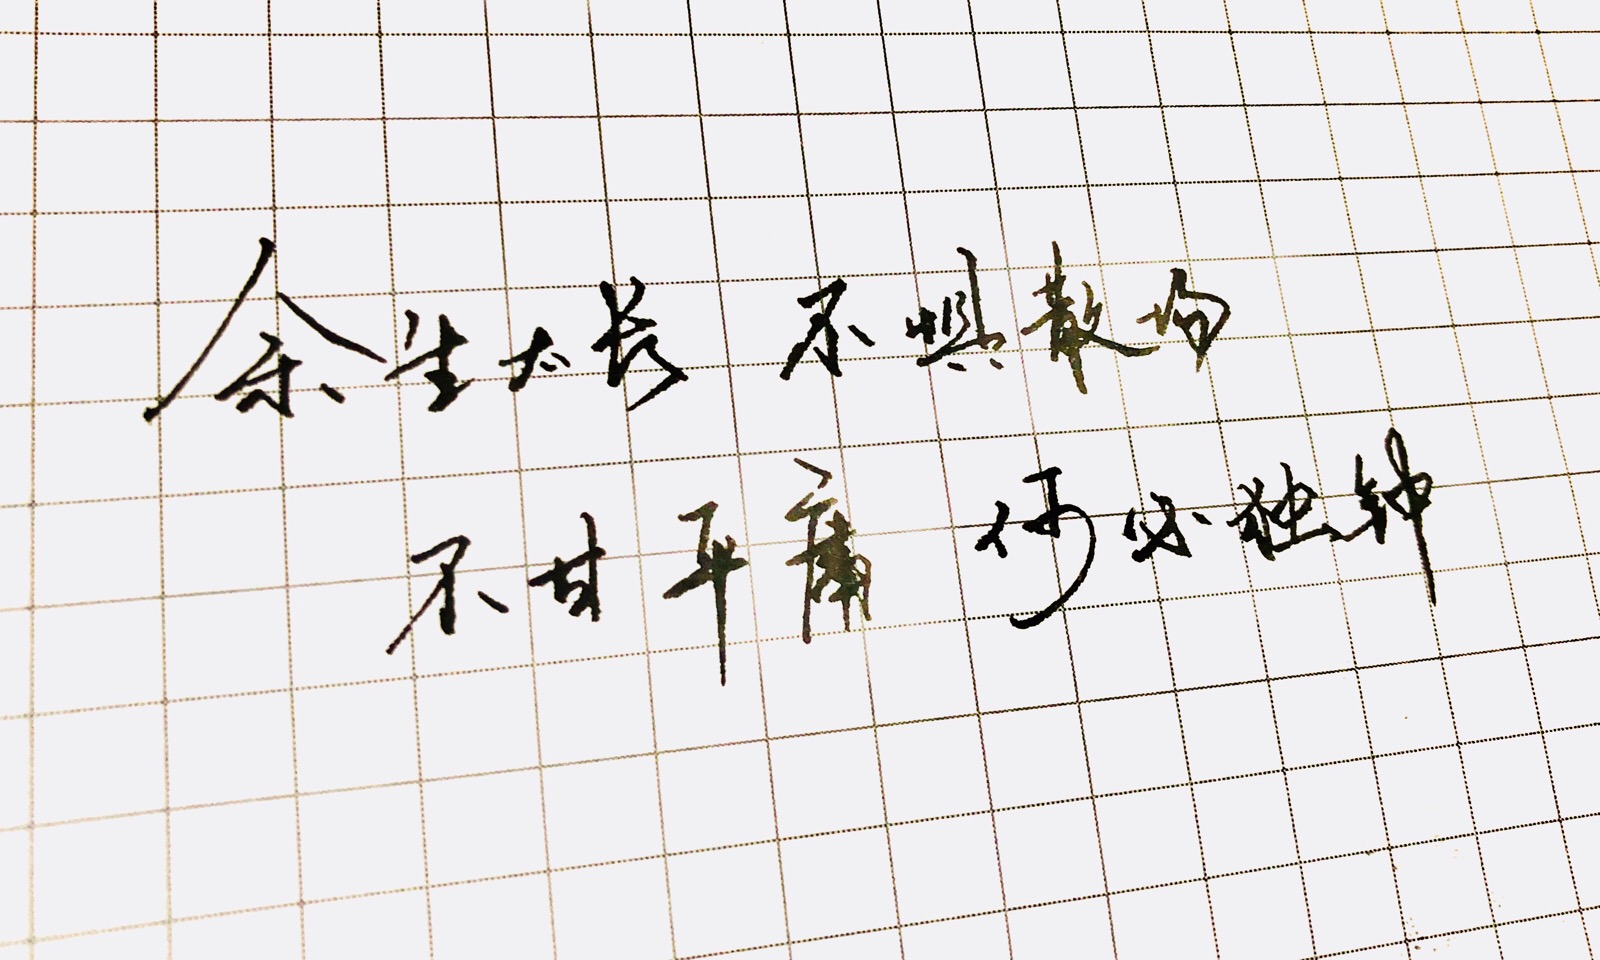 余生太长 不惧散场
不甘平庸 何必独钟